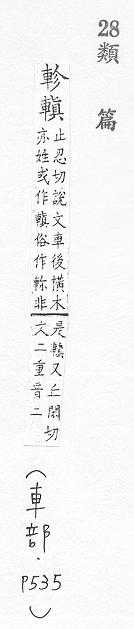 28
類篇
軫䡩
止忍切說文車後橫木
亦姓或作䡩俗作軫非
是𨏥又丘閑切
文二重音二
(車部.
P535)